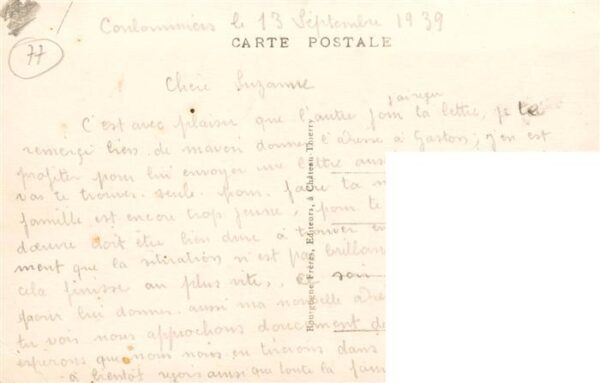 Coulommiers le 13 Septembre 1939
CARTE POSTALE
77
Chère Suzanne
j'ai reçu
C'est avec plaisir que l'autre jour ta lettre, je te
remerçi bien de mavoir donner l'adresse à Gaston; j'en est
profiter pour lui envoyer une lettre aussi
vas te trouver seule pour faire ta
famille est encore trop jeune, pour te
dœuvre doit être bien dure à trouver en
ment que la situation n'est pas brillan
cela finisse au plus vite, et soir
pour lui donner aussi ma nouvelle adre
tu vois nous approchons doucement de
espérons que nous nous en tirerons dans
à bientôt ainsi que toute la fam
Bourgogne Frères, Editeurs, à Château-Thierry